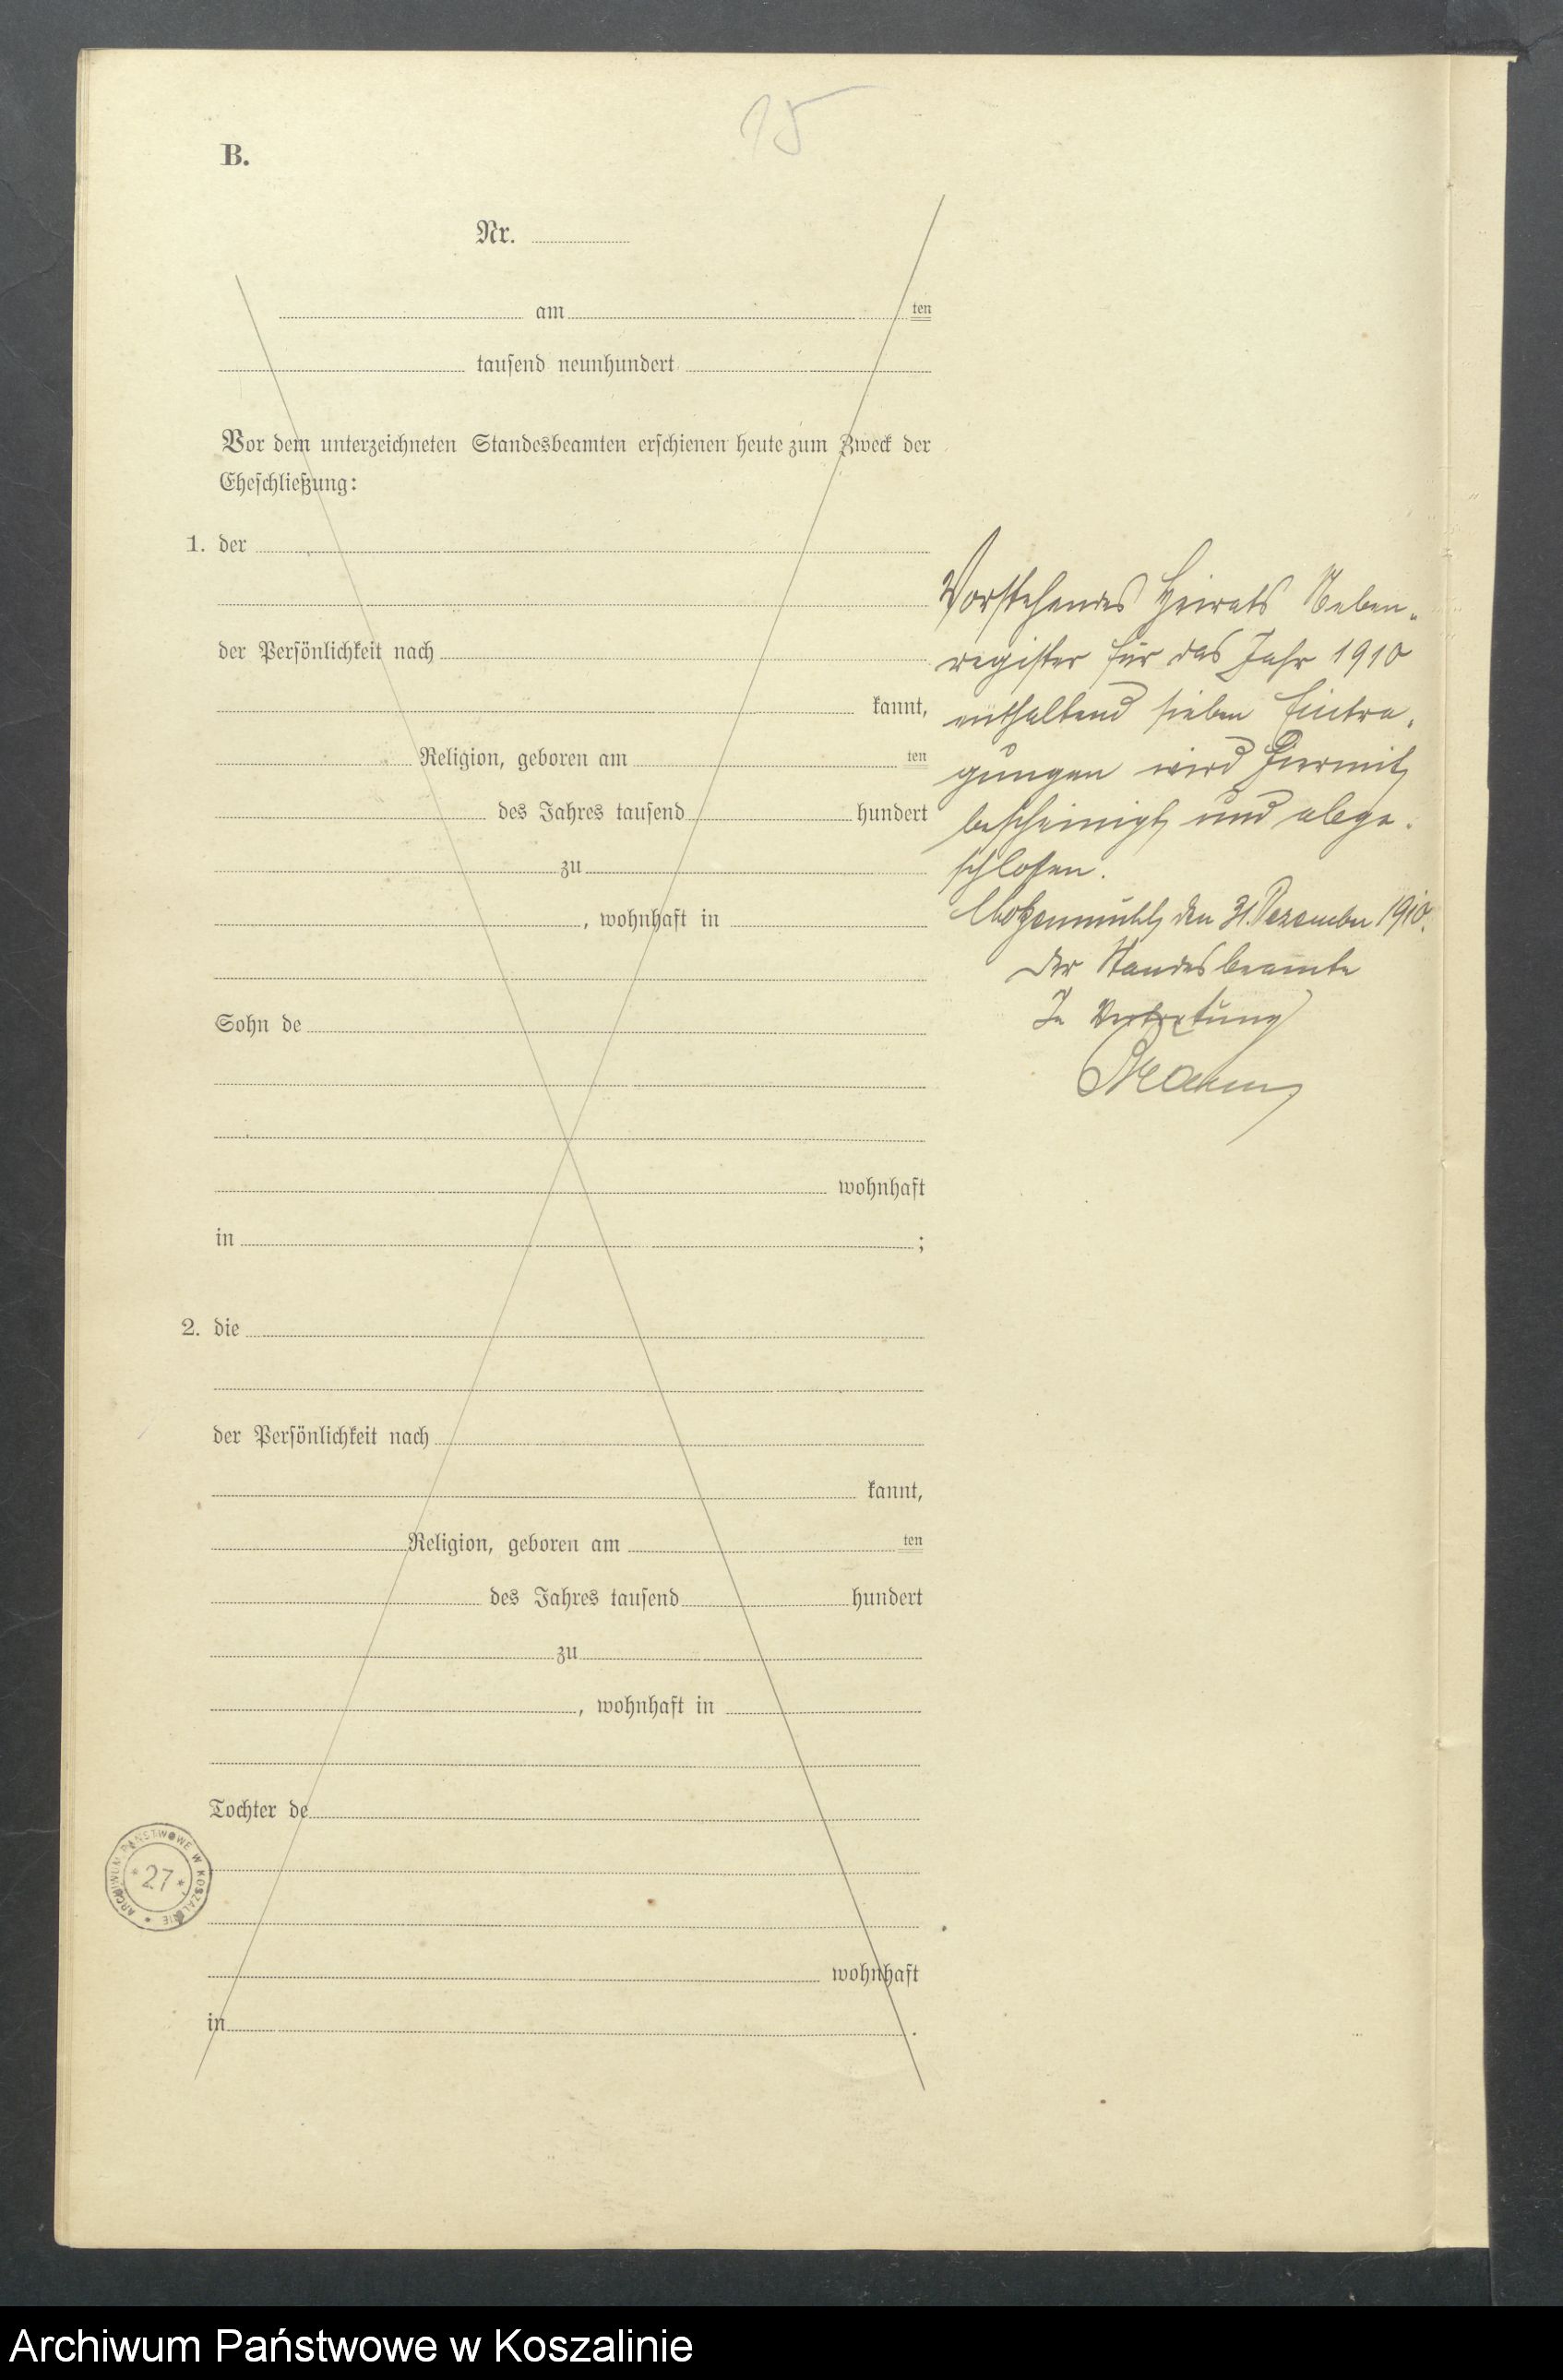 15
B.
Nr.
am ten
tausend neunhundert
Vor dem unterzeichneten Standesbeamten erschienen heute zum Zweck der
Eheschließung:
1. der
der Persönlichkeit nach
kannt,
Religion, geboren am ten
des Jahres tausend hundert
zu
, wohnhaft in
Sohn de
wohnhaft
in ;
2. die
der Persönlichkeit nach
kannt,
Religion, geboren am ten
des Jahres tausend hundert
zu
, wohnhaft in
Tochter de
wohnhaft
in .
Vorstehendes Heirats Neben-
register für das Jahr 1910
enthaltend sieben Eintra-
gungen wird hiermit
bescheinigt und abge-
schlossen.
den 31. Dezember 1910.
Der Standesbeamte
In Vertretung
ARCHIWUM PAŃSTWOWE W KOSZALINIE
* 27 *
Archiwum Państwowe w Koszalinie